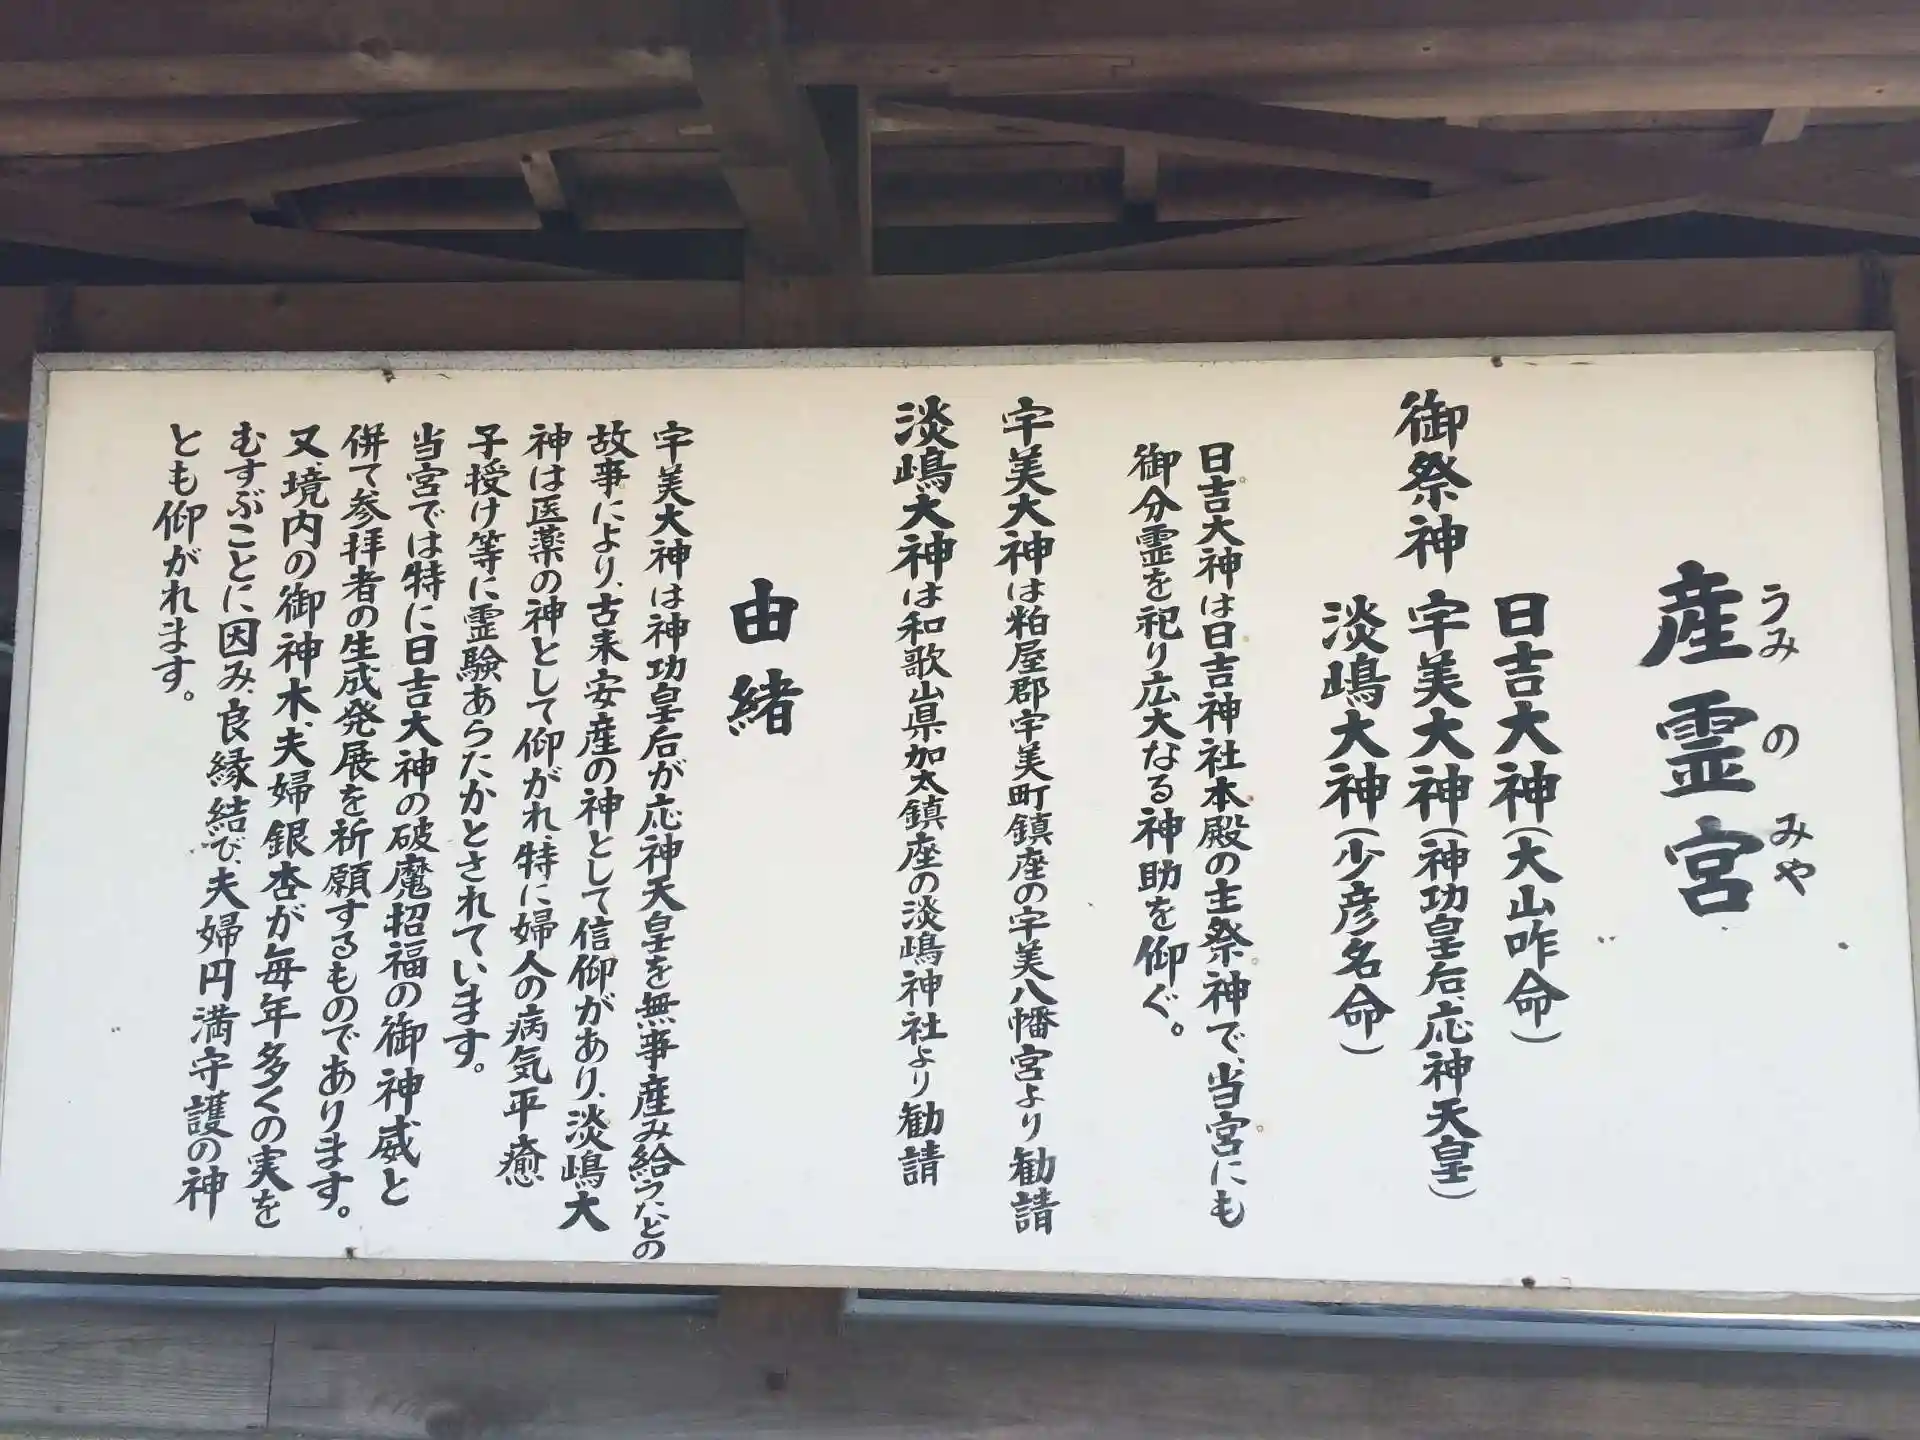 産霊宮
うみのみや
日吉大神(大山咋命)
御祭神 宇美大神(神功皇后、応神天皇)
淡嶋大神(少彦名命)
日吉大神は日吉神社本殿の主祭神で、当宮にも
御分霊を祀り広大なる神助を仰ぐ。
宇美大神は粕屋郡宇美町鎮座の宇美八幡宮より勧請
淡嶋大神は和歌山県加太鎮座の淡嶋神社より勧請
由緒
宇美大神は神功皇后が応神天皇を無事産み給うたとの
故事により、古来安産の神として信仰があり、淡嶋大
神は医薬の神として仰がれ、特に婦人の病気平癒
子授け等に霊験あらたかとされています。
当宮では特に日吉大神の破魔招福の御神威と
併て参拝者の生成発展を祈願するものであります。
又、境内の御神木、夫婦銀杏が毎年多くの実を
むすぶことに因み、良縁結び、夫婦円満守護の神
とも仰がれます。